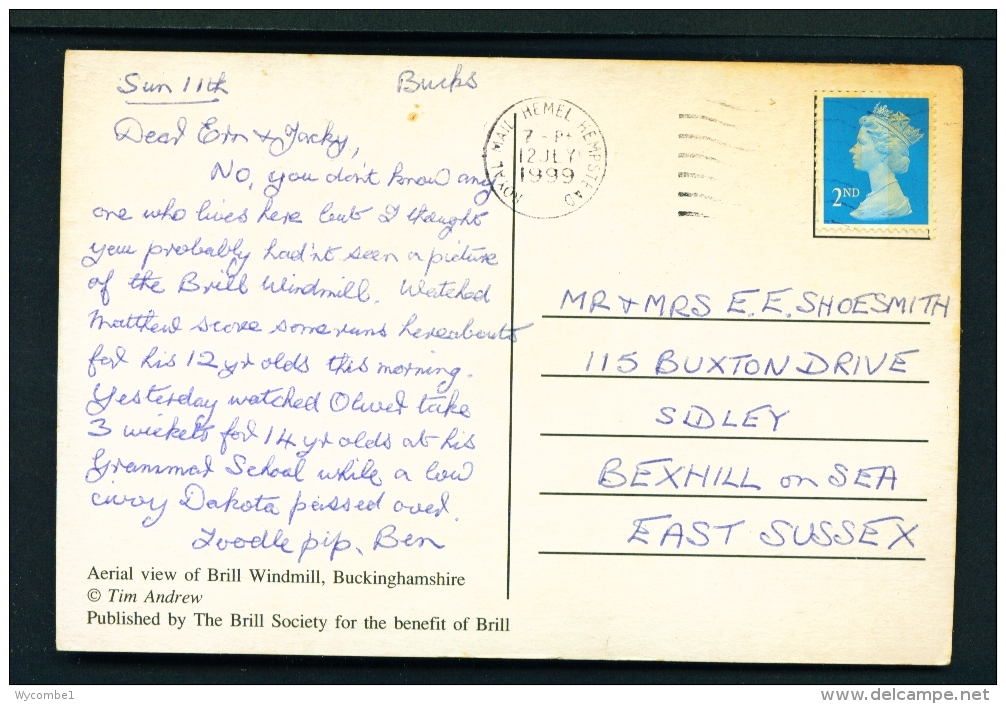 Sun 11th Bucks
Dear Ern & Jacky,
No, you don't know any
one who lives here but I thought
you probably had'nt seen a picture
of the Brill Windmill. Watched
Matthew score some runs hereabouts
for his 12 yr olds this morning.
Yesterday watched Oliver take
3 wickets for 14 yr olds at his
Grammar School while a low
Dakota passed over.
Toodle pip, Ben
Aerial view of Brill Windmill, Buckinghamshire
© Tim Andrew
Published by The Brill Society for the benefit of Brill
ROYAL MAIL HEMEL HEMPSTEAD
7 - P
12 JLY
1999
2ND
MR & MRS E. E. SHOESMITH
115 BUXTON DRIVE
SIDLEY
BEXHILL on SEA
EAST SUSSEX
Wycombe1
www.delcampe.net